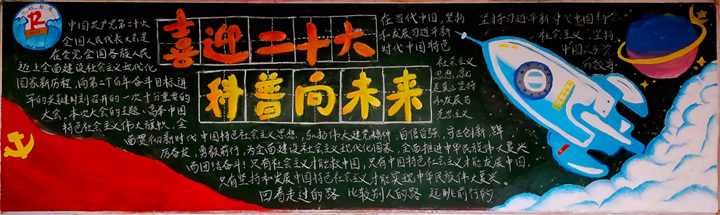 喜迎二十大
科普向未来
中国共产党第二十次
全国人民代表大会是
在全党全国各族人民
迈上全面建设社会主义现代化
国家新历程,向第二个百年奋斗目标进
军的关键时刻召开的一次十分重要的
大会,本次大会的主题:高举中国
特色社会主义伟大旗帜,全
面贯彻新时代中国特色社会主义思想,弘扬伟大建党精神,自信自强,守正创新,踔
厉奋发,勇毅前行,为全面建设社会主义现代化国家,全面推进中华民族伟大复兴
而团结奋斗!只有社会主义才能救中国,只有中国特色社会主义才能发展中国,
只有坚持和发展中国特色社会主义才能实现中华民族伟大复兴
回看走过的路 比较别人的路 远眺前行的
在当代中国,坚持
和发展习近平新
时代中国特色
社会主义
思想,就
是真正坚持
和发展马
克思主义
坚持习近平新时代中国特色
社会主义